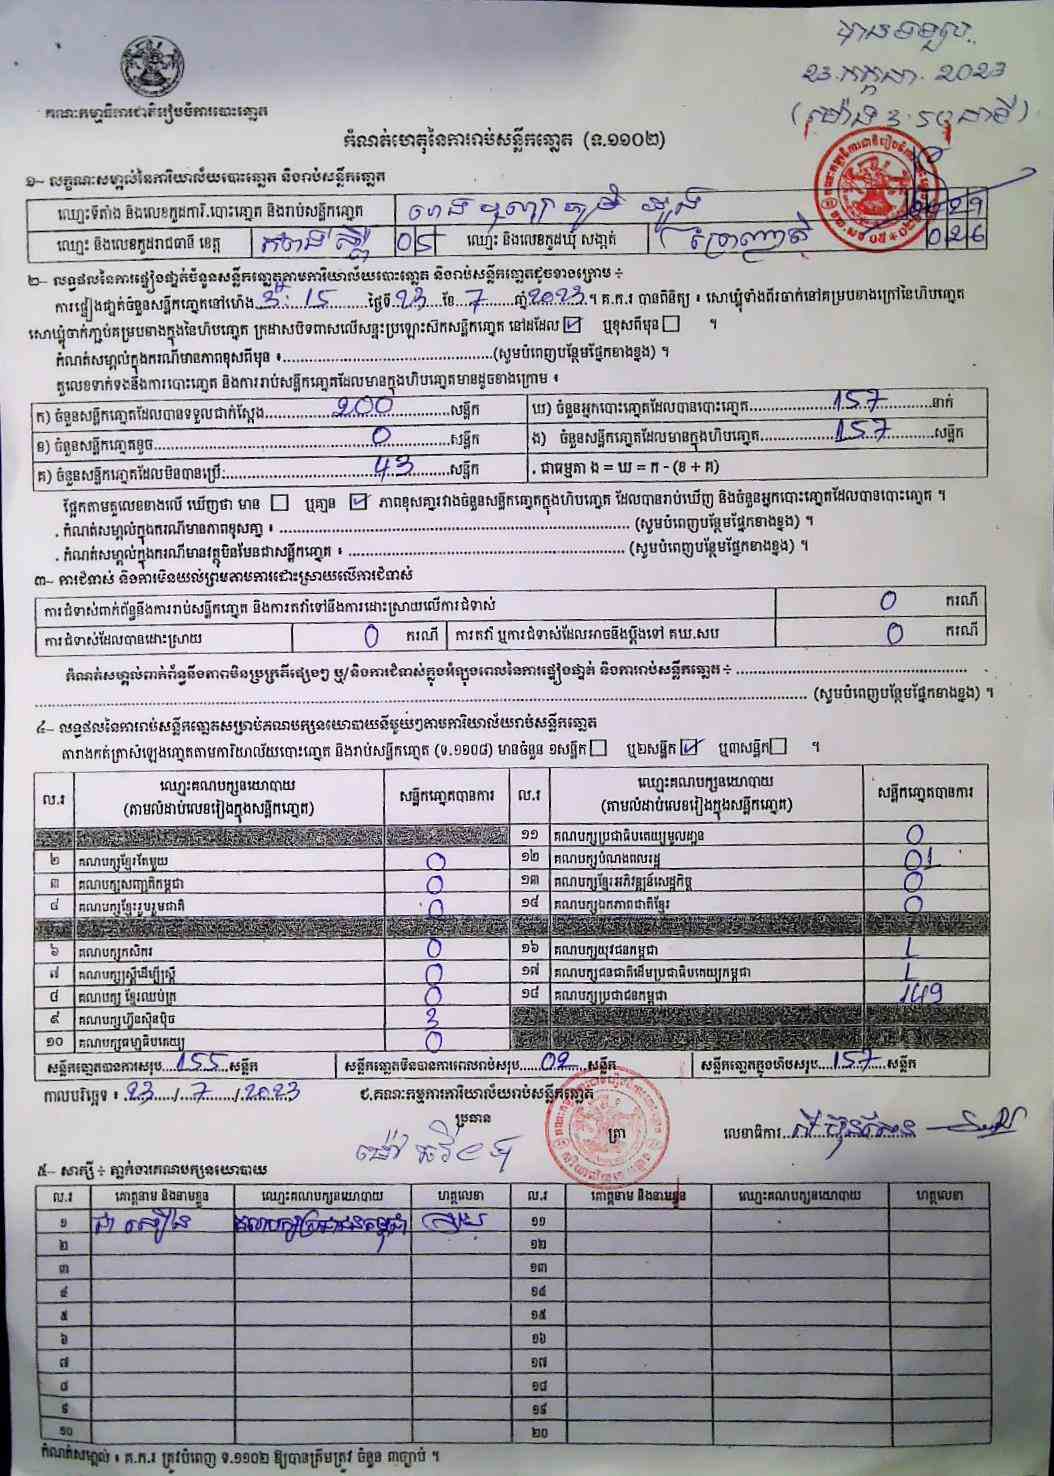 បានទទួល
23.កក្កដា.2023
គណៈកម្មាធិការជាតិរៀបចំការបោះឆ្នោត
កំណត់ហេតុនៃការរាប់សន្លឹកឆ្នោត (ទ.១១០២)
១- លក្ខណៈសម្គាល់នៃការិយាល័យបោះឆ្នោត និងរាប់សន្លឹកឆ្នោត
ឈ្មោះទីតាំង និងលេខកូដការិ.បោះឆ្នោត និងរាប់សន្លឹកឆ្នោត
ឈ្មោះ និងលេខកូដរាជធានី ខេត្ត 05 ឈ្មោះ និងលេខកូដឃុំ សង្កាត់ 026
២- លទ្ធផលនៃការផ្ទៀងផ្ទាត់ចំនួនសន្លឹកឆ្នោតតាមការិយាល័យបោះឆ្នោត និងរាប់សន្លឹកឆ្នោតដូចខាងក្រោម ÷
ការផ្ទៀងផ្ទាត់ចំនួនសន្លឹកឆ្នោតនៅម៉ោង 3:15 ថ្ងៃទី 23 ខែ 7 ឆ្នាំ 2023 ។ គ.ក.រ បានពិនិត្យ ៖ សោឃ្លុំទាំងពីរចាក់នៅគម្របខាងក្រៅនៃហិបឆ្នោត
សោឃ្លុំចាក់ភ្ជាប់គម្របខាងក្នុងនៃហិបឆ្នោត ក្រដាសបិទពាសលើសន្ទះប្រឡោះស៊កសន្លឹកឆ្នោត នៅដដែល ☑ ឬខុសពីមុន ☐ ។
កំណត់សម្គាល់ក្នុងករណីមានភាពខុសពីមុន ៖ (សូមបំពេញបន្ថែមផ្នែកខាងខ្នង) ។
តួលេខទាក់ទងនឹងការបោះឆ្នោត និងការរាប់សន្លឹកឆ្នោតដែលមានក្នុងហិបឆ្នោតមានដូចខាងក្រោម ៖
ក) ចំនួនសន្លឹកឆ្នោតដែលបានទទួលជាក់ស្តែង 200 សន្លឹក ឃ) ចំនួនអ្នកបោះឆ្នោតដែលបានបោះឆ្នោត 157 នាក់
ខ) ចំនួនសន្លឹកឆ្នោតខូច 0 សន្លឹក ង) ចំនួនសន្លឹកឆ្នោតដែលមានក្នុងហិបឆ្នោត 157 សន្លឹក
គ) ចំនួនសន្លឹកឆ្នោតដែលមិនបានប្រើ: 43 សន្លឹក . ជាធម្មតា ង = ឃ = ក - (ខ + គ)
ផ្អែកតាមតួលេខខាងលើ ឃើញថា មាន ☐ ឬគ្មាន ☑ ភាពខុសគ្នារវាងចំនួនសន្លឹកឆ្នោតក្នុងហិបឆ្នោត ដែលបានរាប់ឃើញ និងចំនួនអ្នកបោះឆ្នោតដែលបានបោះឆ្នោត ។
. កំណត់សម្គាល់ក្នុងករណីមានភាពខុសគ្នា ៖ (សូមបំពេញបន្ថែមផ្នែកខាងខ្នង) ។
. កំណត់សម្គាល់ក្នុងករណីមានវត្ថុមិនមែនជាសន្លឹកឆ្នោត ៖ (សូមបំពេញបន្ថែមផ្នែកខាងខ្នង) ។
៣- ការជំទាស់ និងការមិនយល់ព្រមតាមការដោះស្រាយលើការជំទាស់
ការជំទាស់ពាក់ព័ន្ធនឹងការរាប់សន្លឹកឆ្នោត និងការតវ៉ាទៅនឹងការដោះស្រាយលើការជំទាស់ 0 ករណី
ការជំទាស់ដែលបានដោះស្រាយ 0 ករណី ការតវ៉ា ឬការជំទាស់ដែលអាចនឹងប្តឹងទៅ គឃ.សប 0 ករណី
កំណត់សម្គាល់ពាក់ព័ន្ធនឹងភាពមិនប្រក្រតីផ្សេងៗ ឬ/និងការជំទាស់ក្នុងអំឡុងពេលនៃការផ្ទៀងផ្ទាត់ និងការរាប់សន្លឹកឆ្នោត ÷
(សូមបំពេញបន្ថែមផ្នែកខាងខ្នង) ។
៤- លទ្ធផលនៃការរាប់សន្លឹកឆ្នោតសម្រាប់គណបក្សនយោបាយនីមួយៗតាមការិយាល័យរាប់សន្លឹកឆ្នោត
តារាងកត់ត្រាសំឡេងឆ្នោតតាមការិយាល័យបោះឆ្នោត និងរាប់សន្លឹកឆ្នោត (ទ.១១០៨) មានចំនួន ១សន្លឹក ☐ ឬ២សន្លឹក ☑ ឬ៣សន្លឹក ☐ ។
ល.រ ឈ្មោះគណបក្សនយោបាយ (តាមលំដាប់លេខរៀងក្នុងសន្លឹកឆ្នោត) សន្លឹកឆ្នោតបានការ ល.រ ឈ្មោះគណបក្សនយោបាយ (តាមលំដាប់លេខរៀងក្នុងសន្លឹកឆ្នោត) សន្លឹកឆ្នោតបានការ
១១ គណបក្សប្រជាធិបតេយ្យមូលដ្ឋាន 0
២ គណបក្សខ្មែរតែមួយ 0 ១២ គណបក្សបំណងពលរដ្ឋ 01
៣ គណបក្សសញ្ជាតិកម្ពុជា 0 ១៣ គណបក្សខ្មែរអភិវឌ្ឍន៍សេដ្ឋកិច្ច 0
៤ គណបក្សខ្មែររួបរួមជាតិ 0 ១៤ គណបក្សឯកភាពជាតិខ្មែរ 0
៦ គណបក្សកសិករ 0 ១៦ គណបក្សយុវជនកម្ពុជា 1
៧ គណបក្សស្ត្រីដើម្បីស្ត្រី 0 ១៧ គណបក្សជនជាតិដើមប្រជាធិបតេយ្យកម្ពុជា 1
៨ គណបក្ស ខ្មែរឈប់ក្រ 0 ១៨ គណបក្សប្រជាជនកម្ពុជា 149
៩ គណបក្សហ្វ៊ុនស៊ិនប៉ិច 3
១០ គណបក្សធម្មាធិបតេយ្យ 0
សន្លឹកឆ្នោតបានការសរុប 155 សន្លឹក សន្លឹកឆ្នោតមិនបានការពេលរាប់សរុប 02 សន្លឹក សន្លឹកឆ្នោតក្នុងហិបសរុប 157 សន្លឹក
កាលបរិច្ឆេទ ៖ 23/7/2023 ជ.គណៈកម្មការការិយាល័យរាប់សន្លឹកឆ្នោត
ប្រធាន
ត្រា
លេខាធិការ
៥- សាក្សី ÷ ភ្នាក់ងារគណបក្សនយោបាយ
ល.រ គោត្តនាម និងនាមខ្លួន ឈ្មោះគណបក្សនយោបាយ ហត្ថលេខា ល.រ គោត្តនាម និងនាមខ្លួន ឈ្មោះគណបក្សនយោបាយ ហត្ថលេខា
១ គណបក្សប្រជាជនកម្ពុជា ១១
២ ១២
៣ ១៣
៤ ១៤
៥ ១៥
៦ ១៦
៧ ១៧
៨ ១៨
៩ ១៩
១០ ២០
កំណត់សម្គាល់ ៖ គ.ក.រ ត្រូវបំពេញ ទ.១១០២ ឱ្យបានត្រឹមត្រូវ ចំនួន ៣ច្បាប់ ។